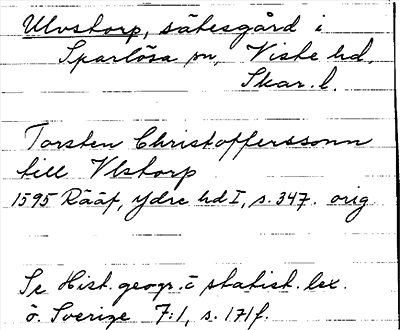 Ulvstorp, sätesgård i
Sparlösa sn, Viste hd,
Skar. l.
Torsten Christofferssonn
till Vlstorp
1595 Rääf, Ydre hd I, s. 347. orig
Se Hist. geogr. o statist. lex.
ö. Sverige 7:1, s. 171f.